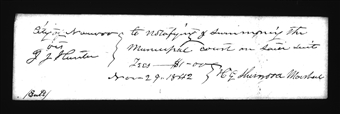 City of Nauvoo } to Notifying & Summoning the
vs } Municipal Court on said suit
G J Hunter } Fees $1-00
Nov 29 - 1842 } H G Sherwood Marshal